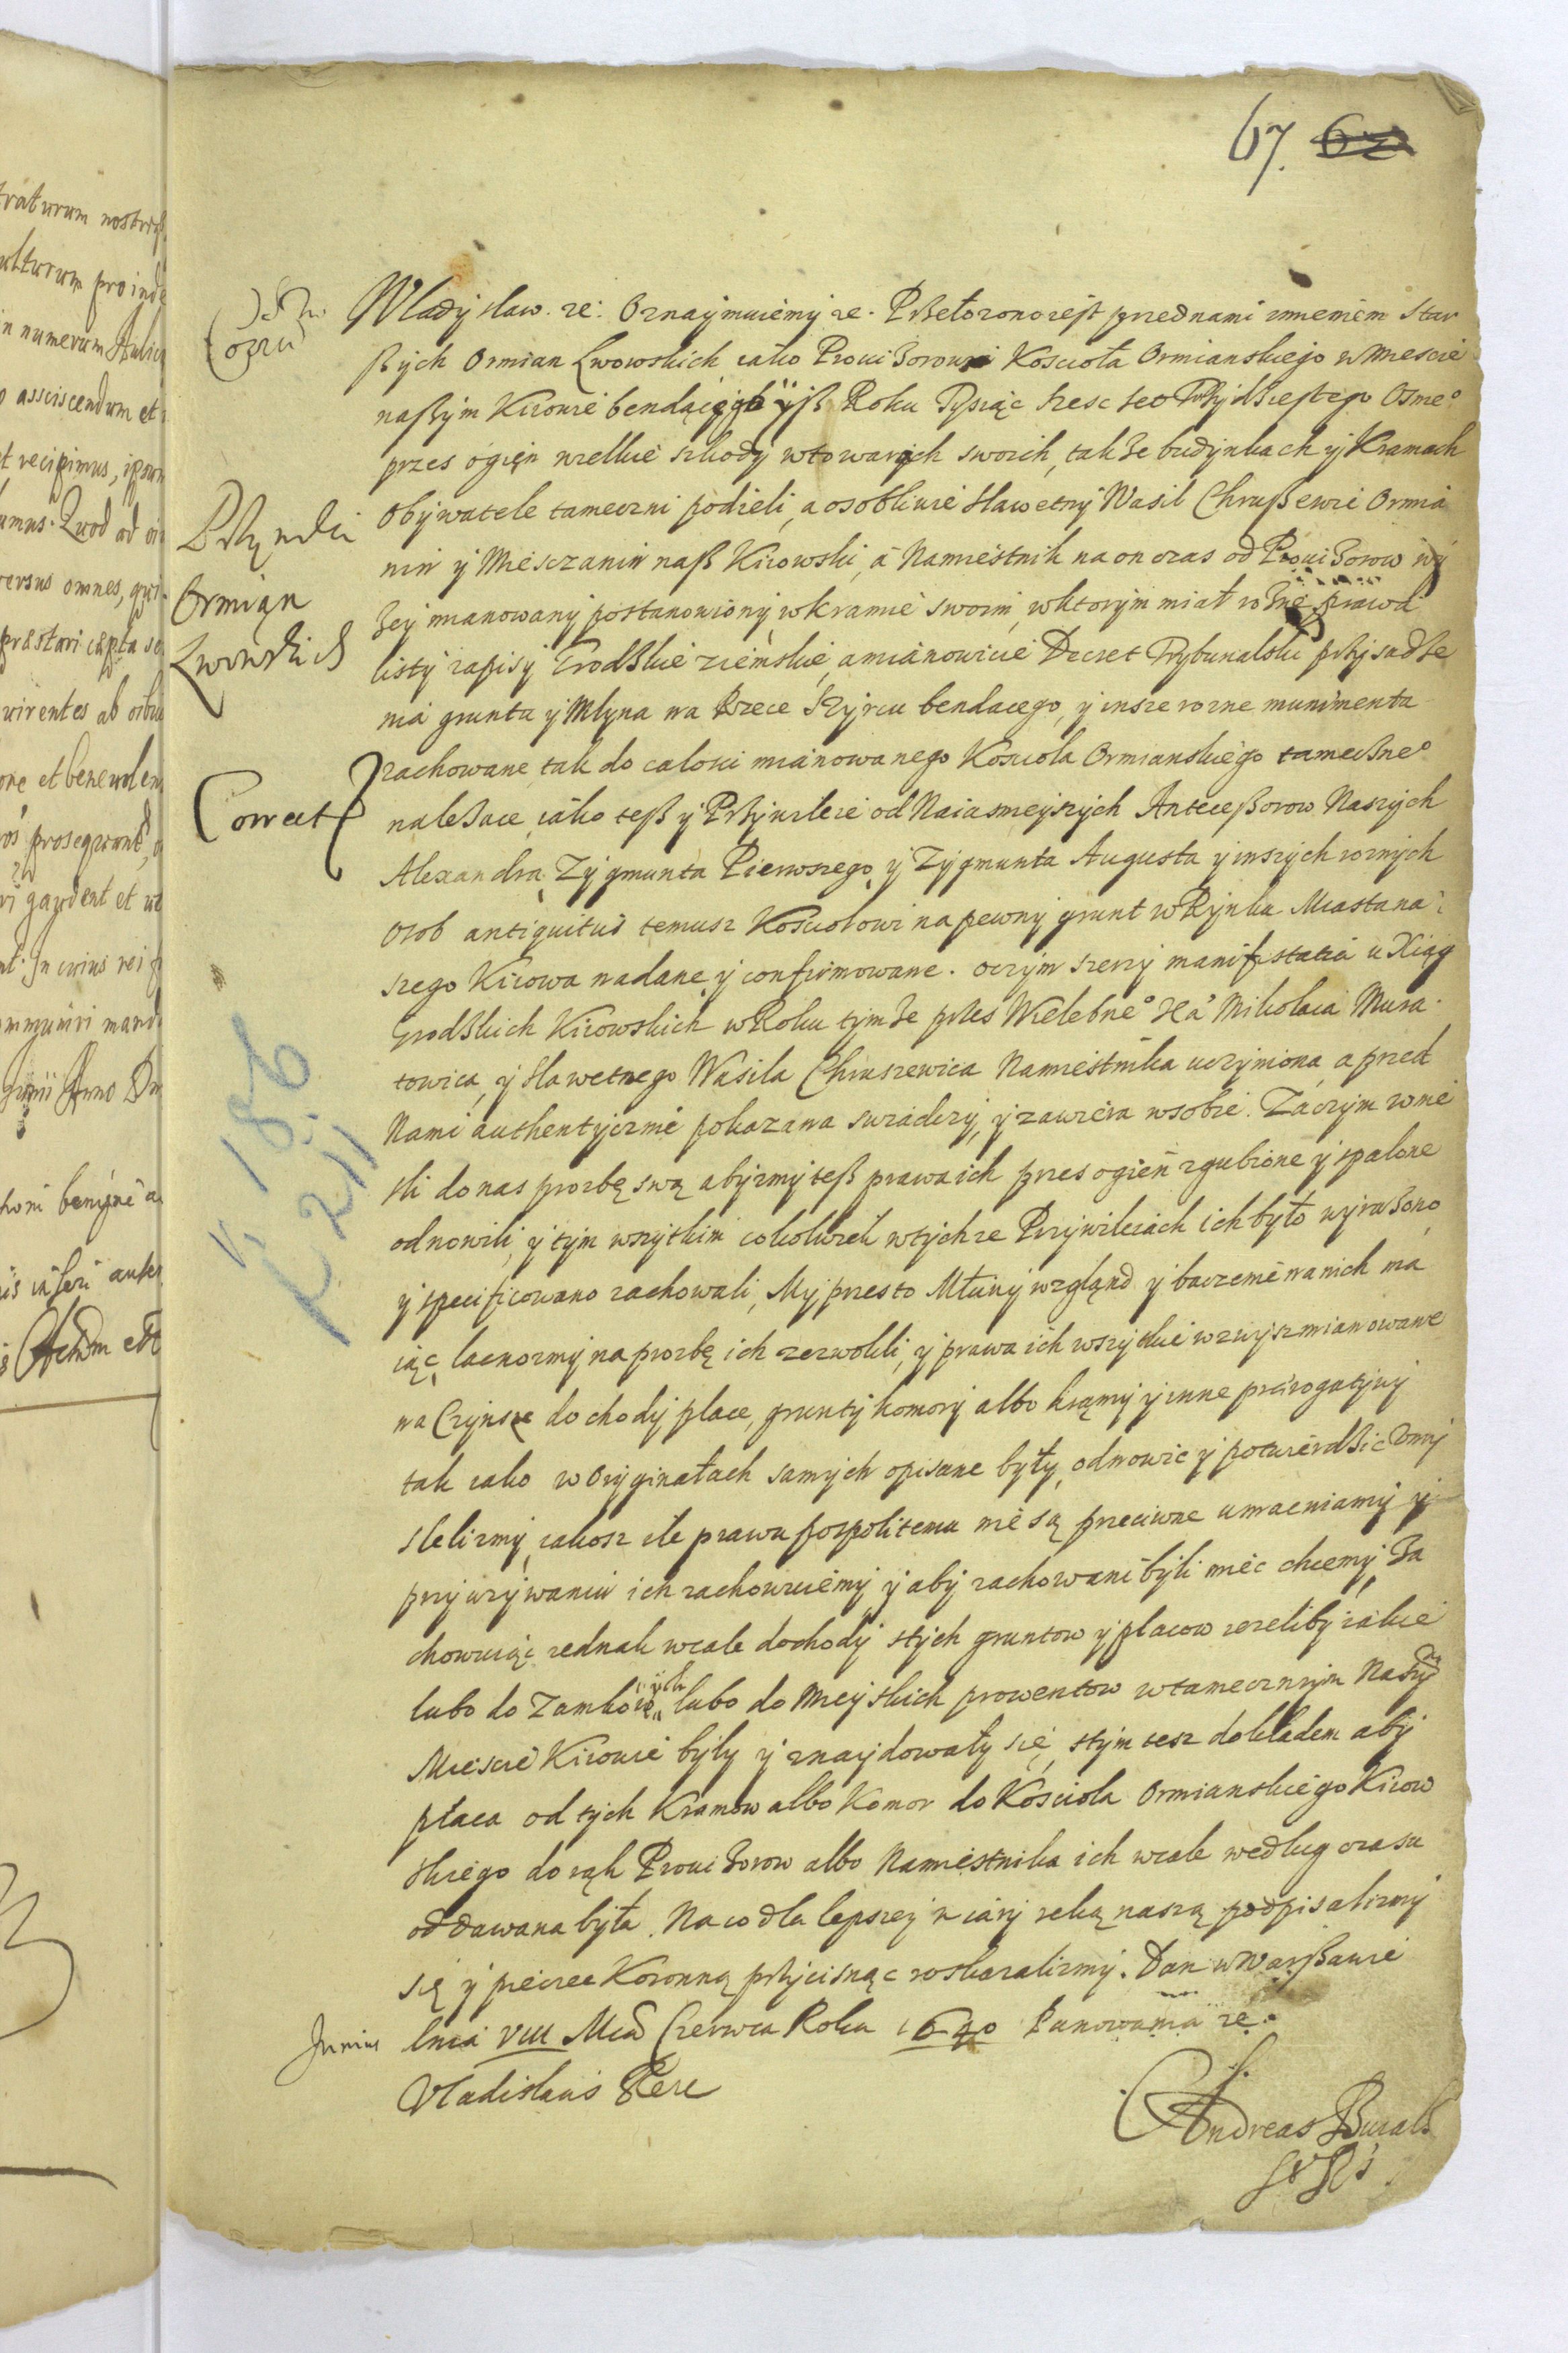 67. 62
Wladysław. ze: Oznaymuiemy ze. Przełozono iest przednami imieniem Star
ßych Ormian Lwowskich iako Prouizorow Koscioła Ormianskiego w Miescie
naßym Kiiowie bendącego yß Roku Tysiąc szesc seo Trzydziestego Osmeº
przes ogięn wielkie szkody wtowarach swoich, takze budynkach y Kramach
Obywatele tameczni podieli, a osobliwie sławetny Wasil Chrußewic Ormia
nin y Miesczanin naß Kiiowski, a Namiestnik na on czas od Prouizorow wy
zey mianowany postanowiony wkramie swoim, wktorym miał rozne prawa
listy zapisy Grodzkie ziemskie, amianowicie Decret Trybunalski przysadze
nia gruntu y Młyna na Rzece Syrcu bendacego, y insze rozne munimenta
zachowane tak do calosci mianowanego Kosciola Ormianskiego tamecznº
nalezace, iako teß y Przywileie od Naiasnieyszych Anteceßorow Naszych
Alexandra, Zygmunta Pierwszego, y Zygmunta Augusta y inszych roznych
Osob antiquitus temusz Kosciolowi na pewny grunt w Rynku Miasta na
szego Kiiowa nadane y confirmowane. oczym szerzy manifestatia u Xiąg
Grodzkich Kiiowskich w Roku tymze przes Wielebneº Xa Mikolaia Mura
towica, y sławetnego Wasila Chruszewica Namiestnika uczyniona, a przed
Nami authentycznie pokazana swiadczy, y zawiera wsobie. Zaczym wnie
sli do nas prozbę swą abysmy teß prawa ich przes ogien zgubione y spalone
odnowili, y tym wszytkim cokolwiek wtychze Przywileiach ich było wyrazono
y specificowano zachowali, My przeto Mtiwy wzgląnd y baczenie na nich ma
iąc, lacnosmy na prozbę ich zezwolili, y prawa ich wszytkie wzwysz mianowane
na Czynsze dochody place, grunty komory albo kramy y inne prerogatywy
tak iako w Oryginałach samych opisane były, odnowic y potwierdzic umy
slelismy, iakosz ile prawu pospolitemu nie są przeciwne umacniamy y
przy uzywaniu ich zachowuiemy y aby zachowani byli miec chcemy, Za
chowuiąc iednak wcale dochody stych gruntow y placow iezeliby iakie
lubo do Zamkowych lubo do Mieyskich prowentow wtamecznym Naszym
Miescie Kiiowie były y znaydowały się, stym tesz dokładem aby
płaca od tych Kramow albo Komor do Kosciola Ormianskiego Kiiow
skiego do rąk Prouizorow albo Namiestnika ich wcale według czasu
oddawana była. Na co dla lepszey wiary ręką naszą podpisalismy
się y pieczec Koronną przycisnąc roskazalismy. Dan w Warßawie
Dnia VIII Mca Czerwca Roku 1640 Panowania ze.
Vladislaus Rex
Andreas
Ormian
Lwowskich
Correct
Junius
V. 186
K 211